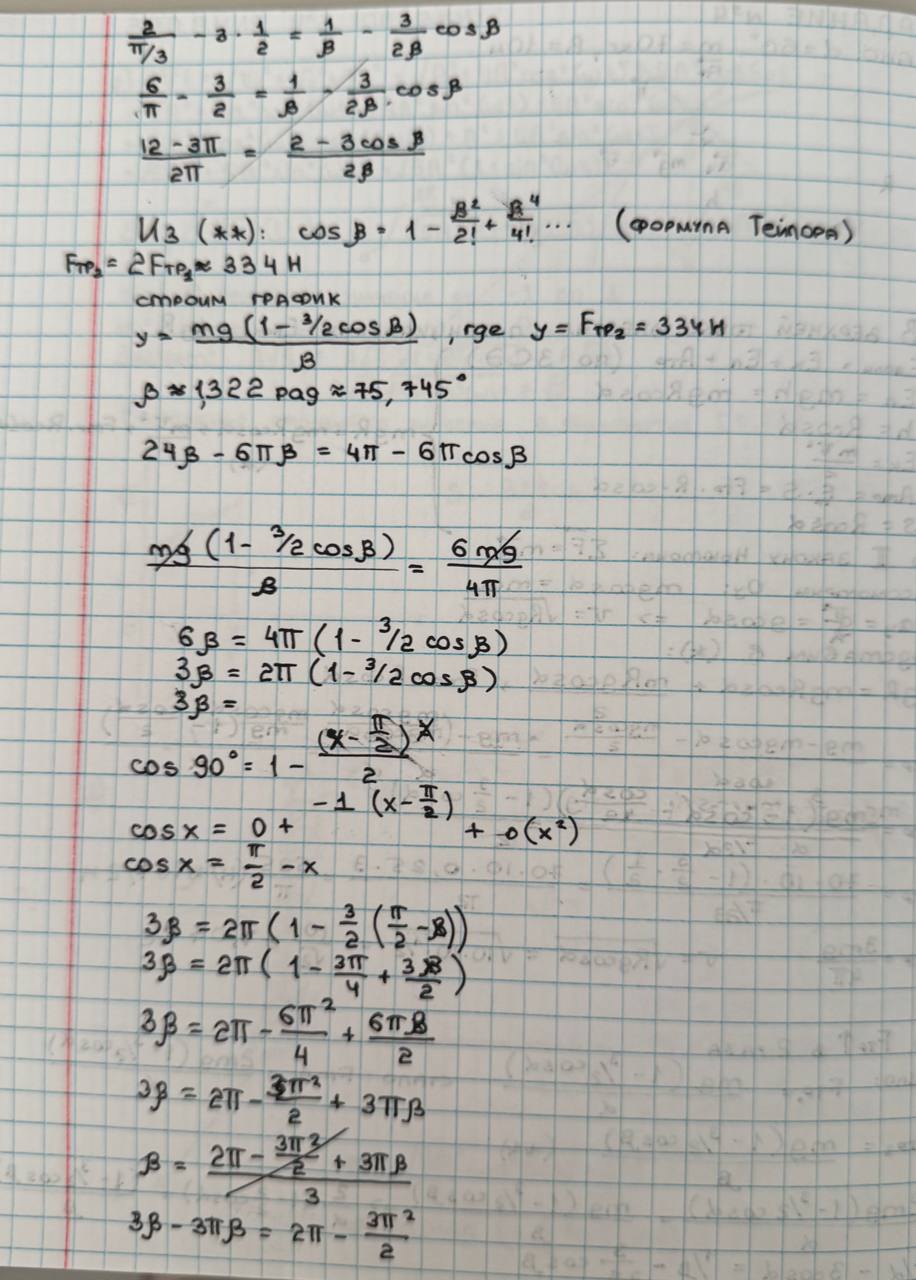 2/(π/3) - 3 · 1/2 = 1/β - 3/(2β) cosβ
6/π - 3/2 = 1/β - 3/(2β) · cosβ
(12 - 3π)/(2π) = (2 - 3cosβ)/(2β)
Из (**): cosβ = 1 - β²/2! + β⁴/4! ... (формула Тейлора)
Fтр₂ = 2Fтр₁ ≈ 334 Н
строим график
y = mg(1 - 3/2 cosβ)/β, где y = Fтр₂ = 334 Н
β ≈ 1,322 рад ≈ 75,745°
24β - 6πβ = 4π - 6π cosβ
mg(1 - 3/2 cosβ)/β = 6mg/(4π)
6β = 4π(1 - 3/2 cosβ)
3β = 2π(1 - 3/2 cosβ)
3β =
cos 90° = 1 - (x - π/2)²/2
cos x = 0 + -1 (x - π/2) + o(x²)
cos x = π/2 - x
3β = 2π(1 - 3/2(π/2 - β))
3β = 2π(1 - 3π/4 + 3β/2)
3β = 2π - 6π²/4 + 6πβ/2
3β = 2π - 3π²/2 + 3πβ
β = (2π - 3π²/2 + 3πβ)/3
3β - 3πβ = 2π - 3π²/2